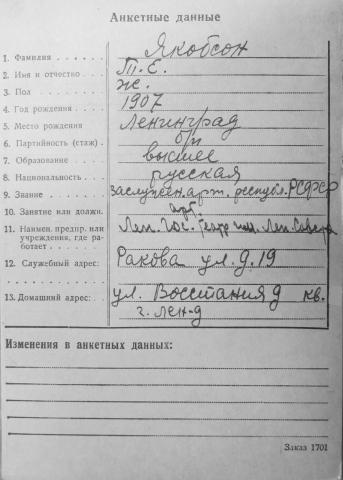 Анкетные данные
1. Фамилия . . . . . . Якобсон
2. Имя и отчество . . . Т.Е.
3. Пол . . . . . . . . ж.
4. Год рождения . . . . 1907
5. Место рождения Ленинград
6. Партийность (стаж) . б/п
7. Образование . . . . высшее
8. Национальность . . . русская
9. Звание . . . . . . Заслужен. арт. республ. РСФСР
10. Занятие или должн. арт.
11. Наимен. предпр. или
учреждения, где ра-
ботает . . . . . . . Лен. Гос. Театр им. Лен. Совета
12. Служебный адрес: Ракова ул. д. 19
13. Домашний адрес: ул. Восстания д кв.
г. Лен-д
Изменения в анкетных данных:
Заказ 1701